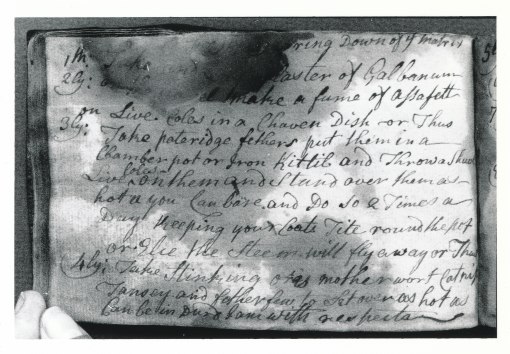 1ly: ring Down of ye matrix
2ly: laster of Galbanum
make a fume of assafett
on Live coles in a Chaven Dish or Thus
3ly: Take pateridge fethers put them in a
Chamber pot or Iron Kittil and Throw a Shuvel
Live Coles on them and Stand over them as
hot as you Can bare and Do So 2 Times a
Day Keeping your Coate Tite round the pot
or Elce the Steem will fly away or Thus
4ly: Take Stinking mother wort Catnip
Tansey and fetherfew to Sit over as hot as
Can be